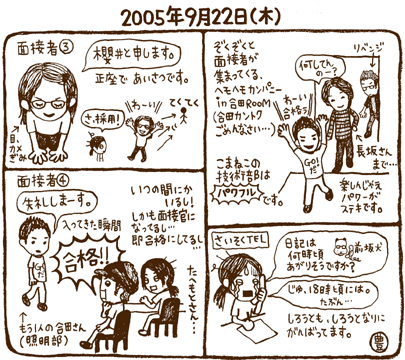 2005年9月22日(木)
面接者③
櫻井と申します。
正座で あいさつです。
さ、採用!
わ〜い
てくてく
目、カメ
ぎみ
ぞくぞくと
面接者が
集まってくる、
ヘモヘモカンパニー
in 合田ROOM
(合田カントク
ごめんなさい…)
何してん
の〜?
リベンジ
わーい
合格っ
GO!
だ
長坂さん
まで…
こまねこの
技術部は
パワフル
です。
楽しんじゃえ
パワーが
ステキです。
面接者④
失礼しまーす。
入ってきた瞬間
合格!!
もう1人の合田さん
(照明部)
いつの間にか
いるし!
しかも面接官に
なってるし…
即合格にしてるし…
たべもとさん…
さいそくTEL
日記は
何時頃
あがりそうですか?
前坂犬
じゅ、18時頃には。
たぶん…
しろうとも、しろうとなりに
がんばってます。
豊